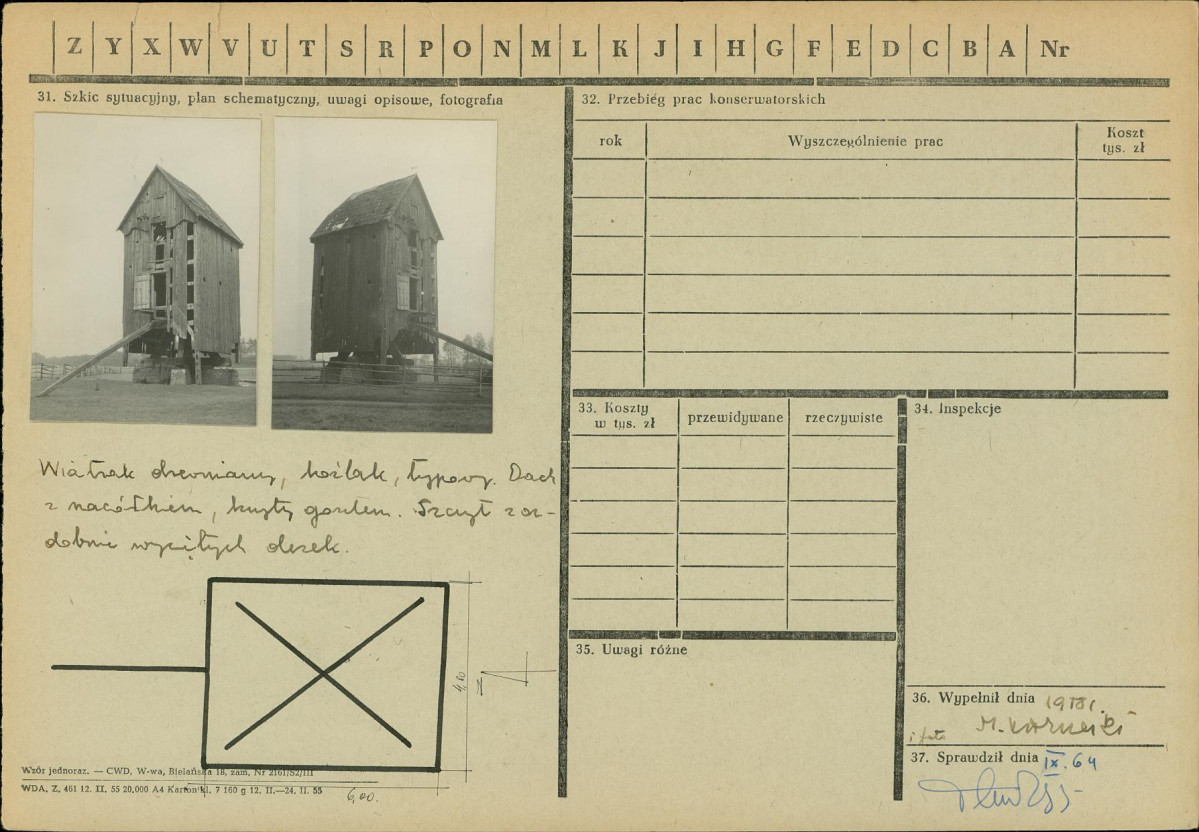 Z Y X W V U T S R P O N M L K J I H G F E D C B A Nr
31. Szkic sytuacyjny, plan schematyczny, uwagi opisowe, fotografia
Wiatrak drewniany, koźlak, typowy. Dach
z naczółkiem, kryty gontem. Szczyt z oz-
dobnie wyciętych desek.
4,80
N
6,00.
Wzór jednoraz. — CWD, W-wa, Bielańska 18, zam. Nr 2161/52/III
WDA, Z, 461 12. II. 55 20,000 A4 Karton kl. 7 160 g 12. II.—24. II. 55
32. Przebieg prac konserwatorskich
rok
Wyszczególnienie prac
Koszt
tys. zł
33. Koszty
w tys. zł
przewidywane
rzeczywiste
34. Inspekcje
35. Uwagi różne
36. Wypełnił dnia
i foto
37. Sprawdził dnia IX. 64